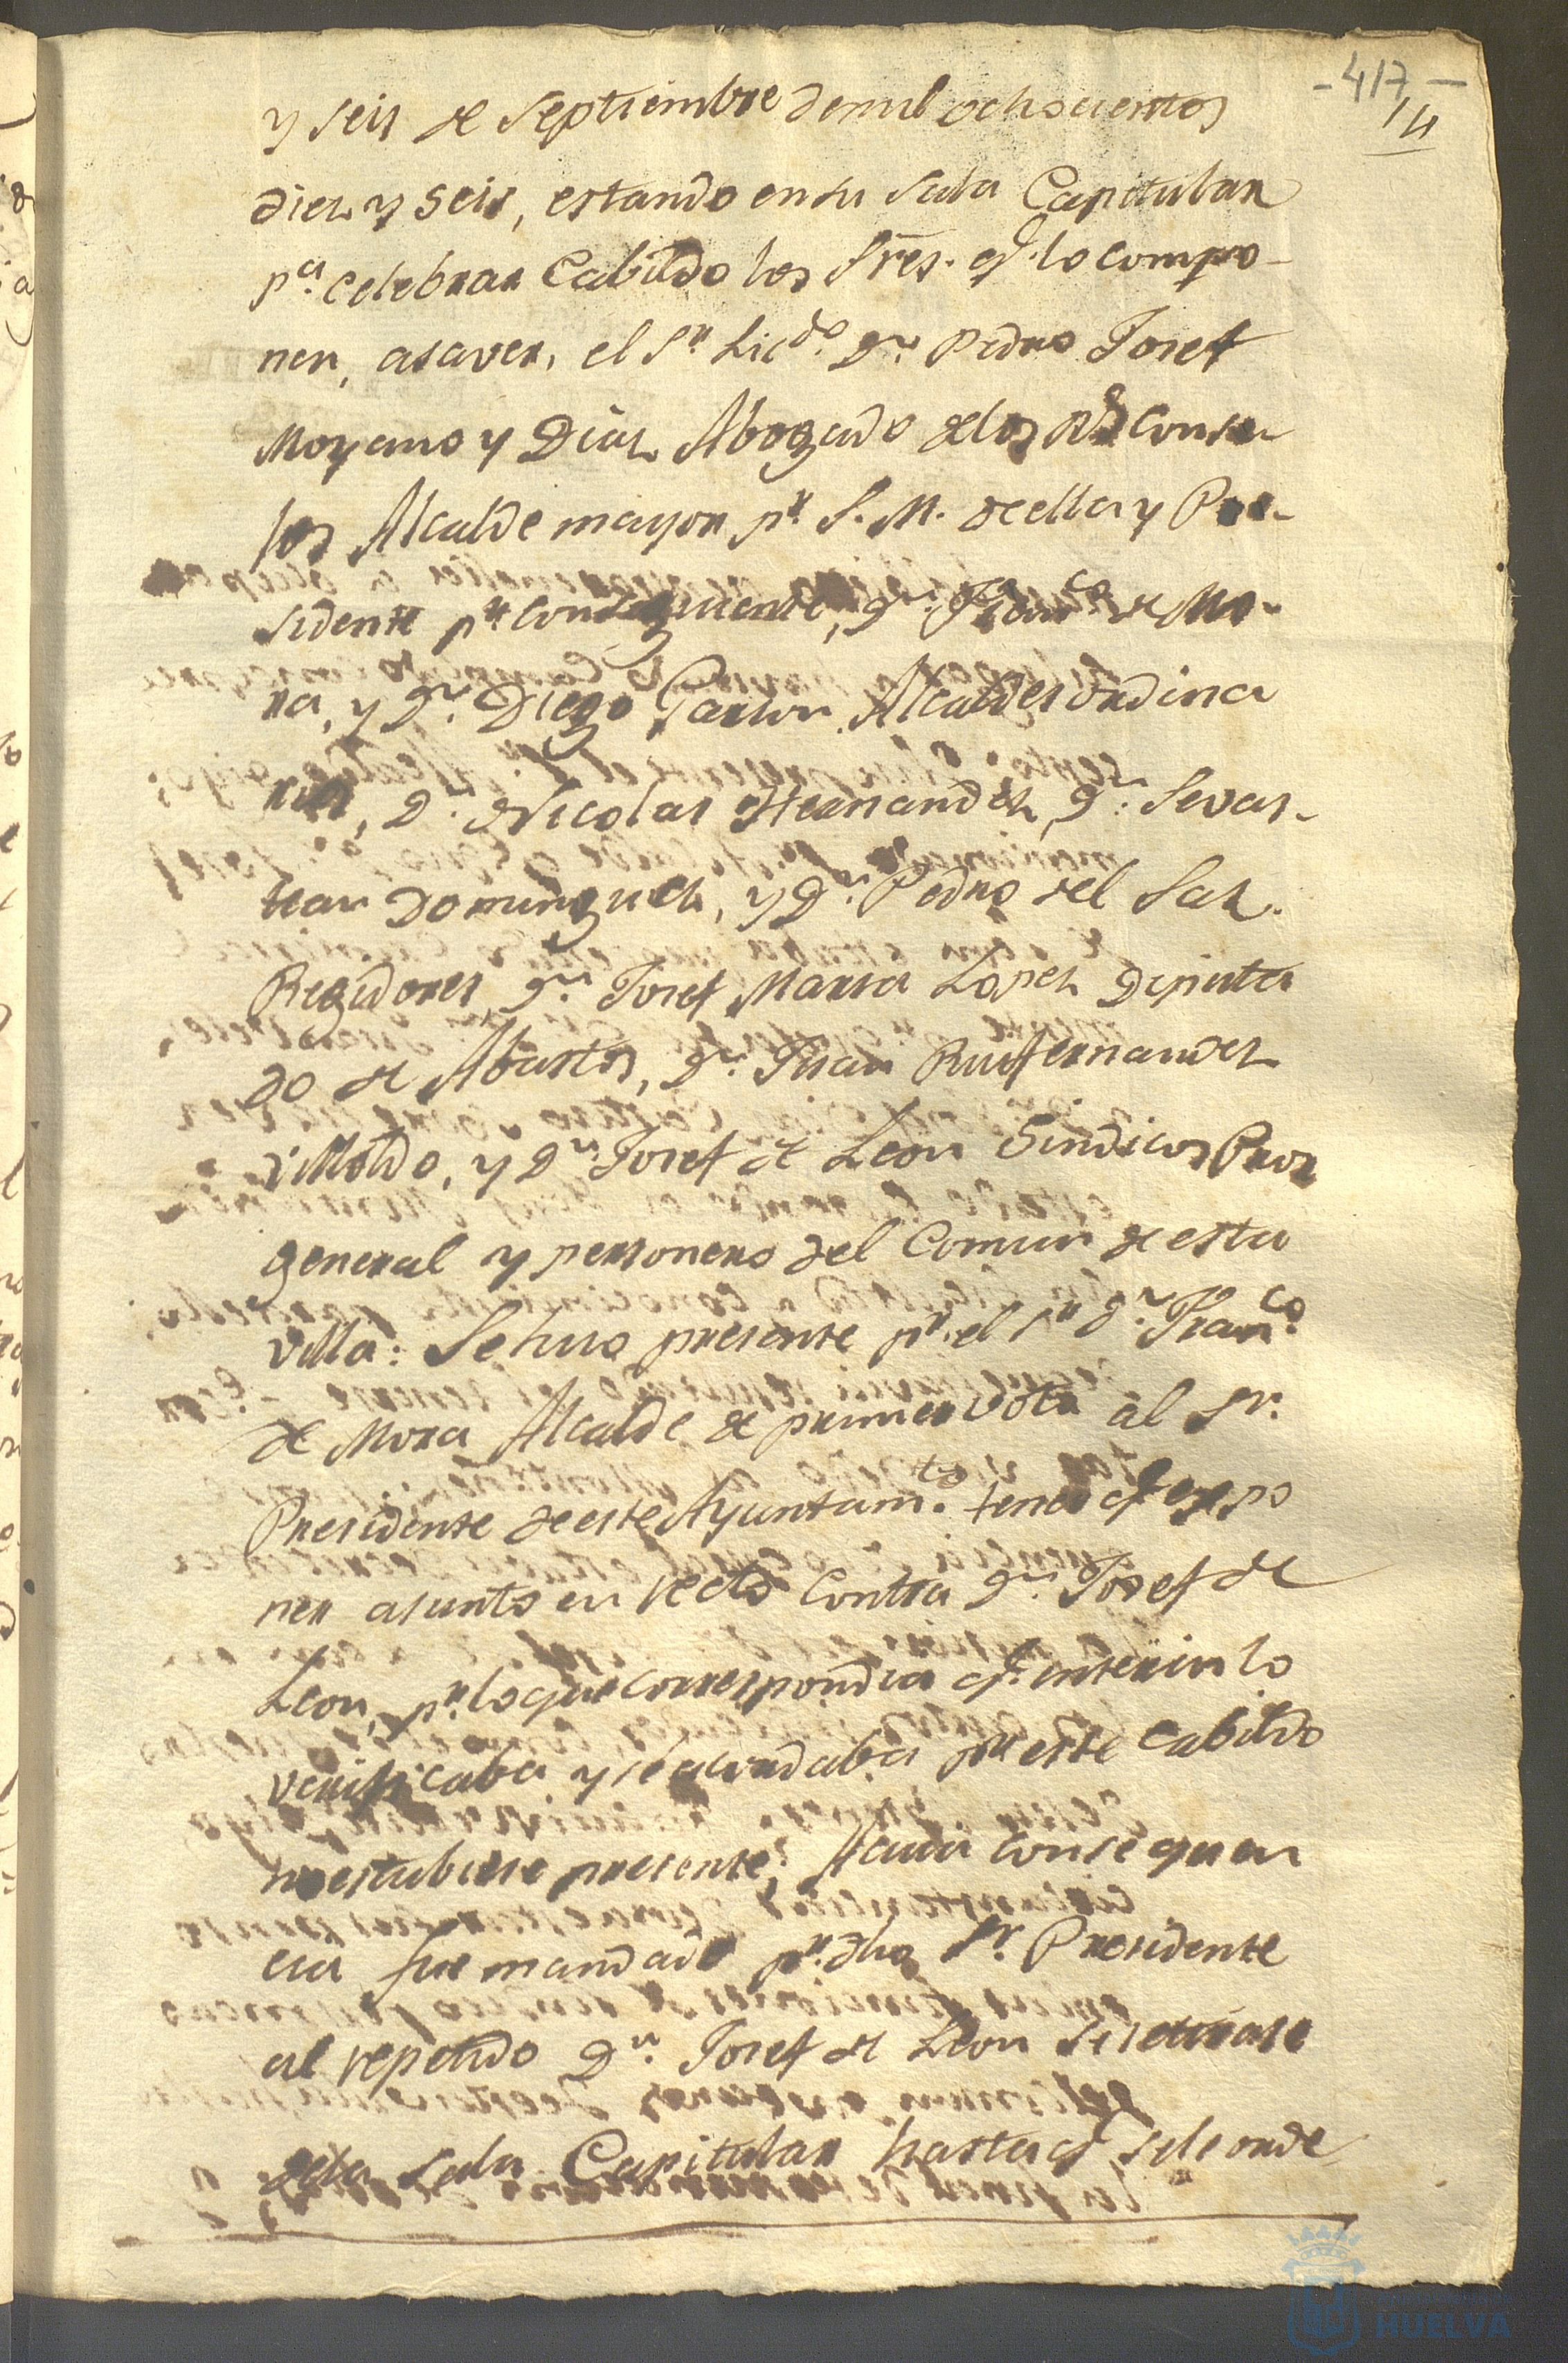 - 417 -
14
y seis de Septiembre de mil ochocientos
diez y seis, estando en su Sala Capitular
pa. celebrar Cabildo los Sres. q. lo compo-
nen, asaver, el Sr. Licdo. Dn. Pedro Josef
Moyano y Diaz Abogado de los Rs Conse-
jos Alcalde mayor pr. S. M. de ella y Pre-
sidente pr. consiguiente, Dn. Franco. de Mo-
ra, y Dn. Diego Garzon Alcaldes ordina
rios, Dn. Nicolas Hernandez, Dn. Sevas-
tian Dominguez, y Dn. Pedro del Saz.
Regidores, Dn. Josef Maria Lopez Diputa
do de Abastos, Dn. Juan Ruifernandez
Villoldo, y Dn. Josef de Leon Sindicos Pror
general y personero del Comun de esta
villa: Se hizo presente pr. el Sr. Dn. Franco.
de Mora Alcalde de primer voto al Sr.
Presidente de este Ayuntamto. tener q. expo
ner asunto en recto contra Dn. Josef de
Leon, pr. lo que correspondia q. interin lo
verificaba y se acordaba pr. este Cabildo
no estubiese presente; A cuia consequen
cia fue mandado pr. dho Sr. Presidente
al repetido Dn. Josef de Leon se retirase
de la Sala Capitular hasta q. se le orde
HUELVA